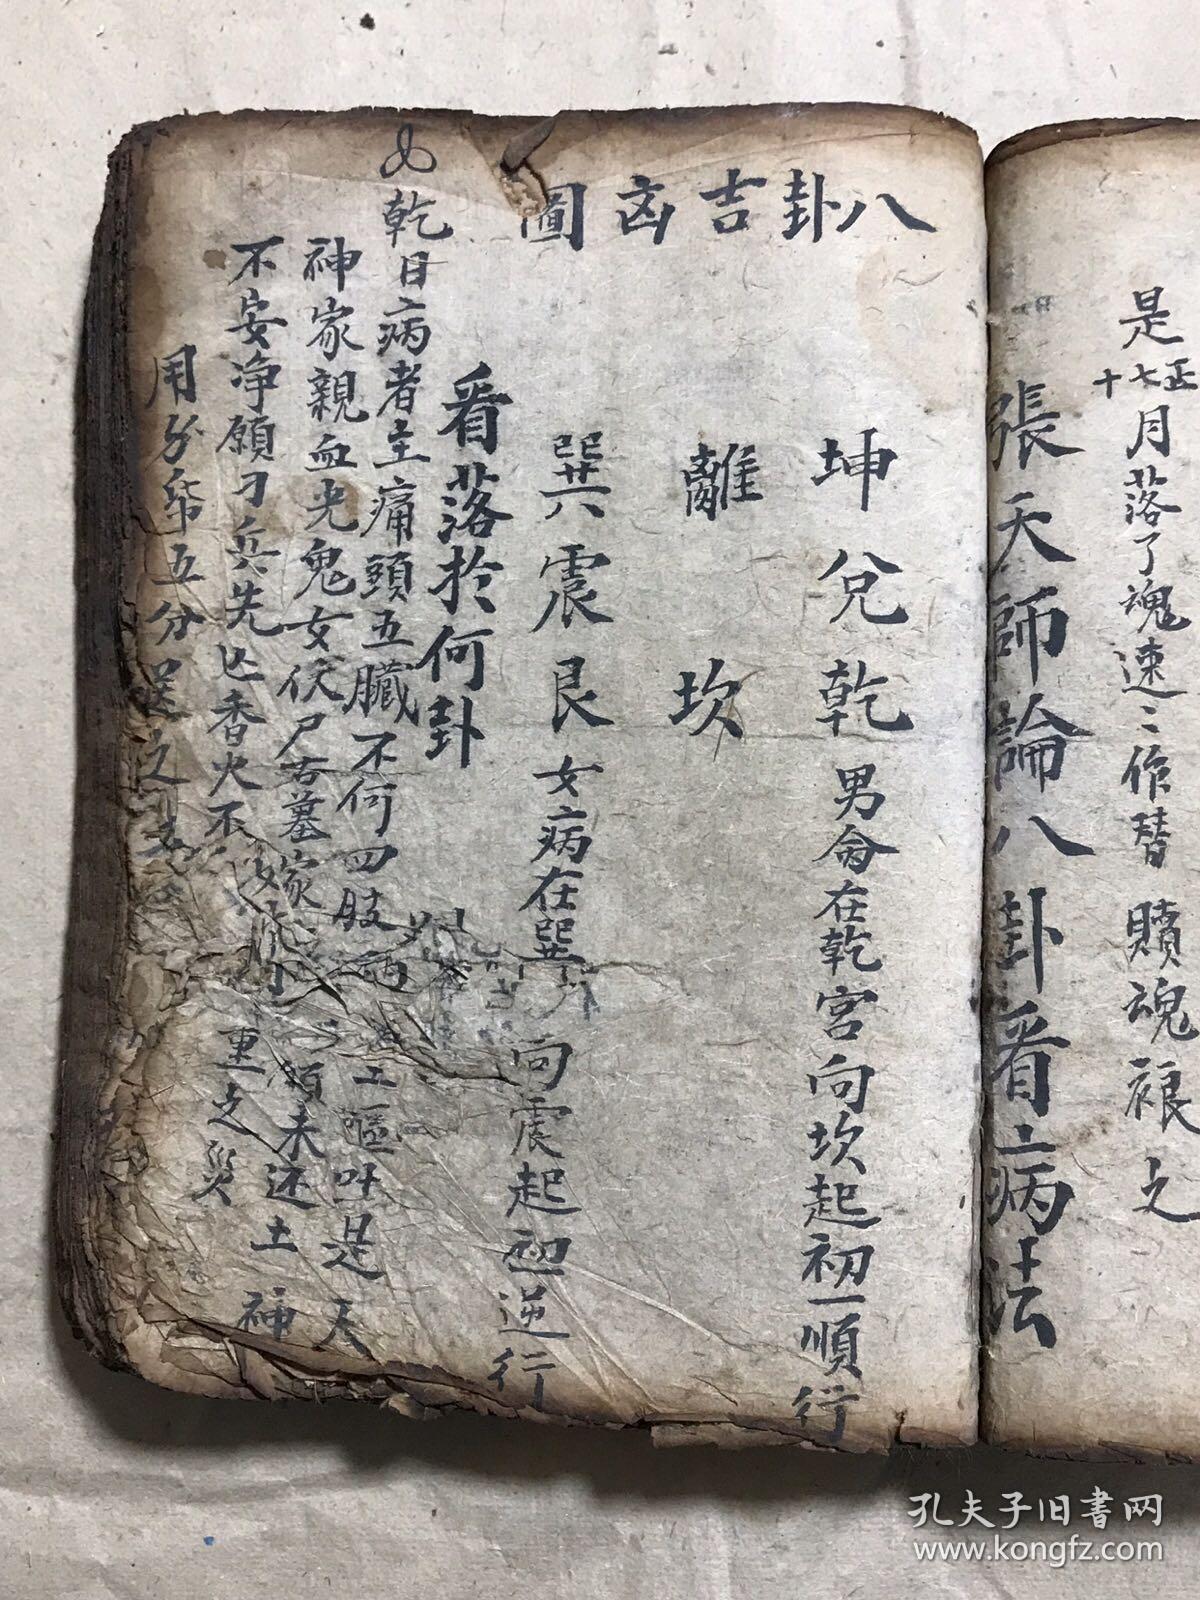 是正七十月落了魂速〻作替贖魂裉之
張天師論八卦看病法
八卦吉凶圖
坤兌乾男命在乾宮向坎起初一順行
離坎
巽震艮女病在巽向震起初一逆行
看落於何卦
乾日病者主痛頭五臟不何四肢嘔吐是天
神家親血光鬼女伏尸古墓家願未还土神
不安净願刀兵先亡香火不重之災
用分帋五分送之吉
孔夫子旧书网
www.kongfz.com